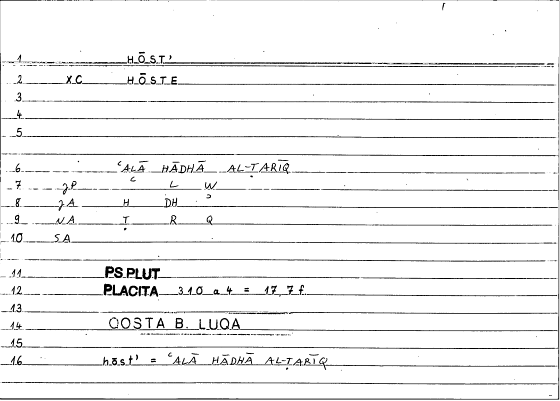 1 HŌST'
2 XC HŌSTE
3
4
5
6 ʿALĀ HĀDHĀ AL-ṬARĪQ
7 gP ʿ L W
8 gA H DH ʾ
9 NA Ṭ R Q
10 SA
11 PS.PLUT
12 PLACITA 310 a 4 = 17, 7 f
13
14 QOSTA B. LUQA
15
16 hōst' = ʿALĀ HĀDHĀ AL-ṬARĪQ